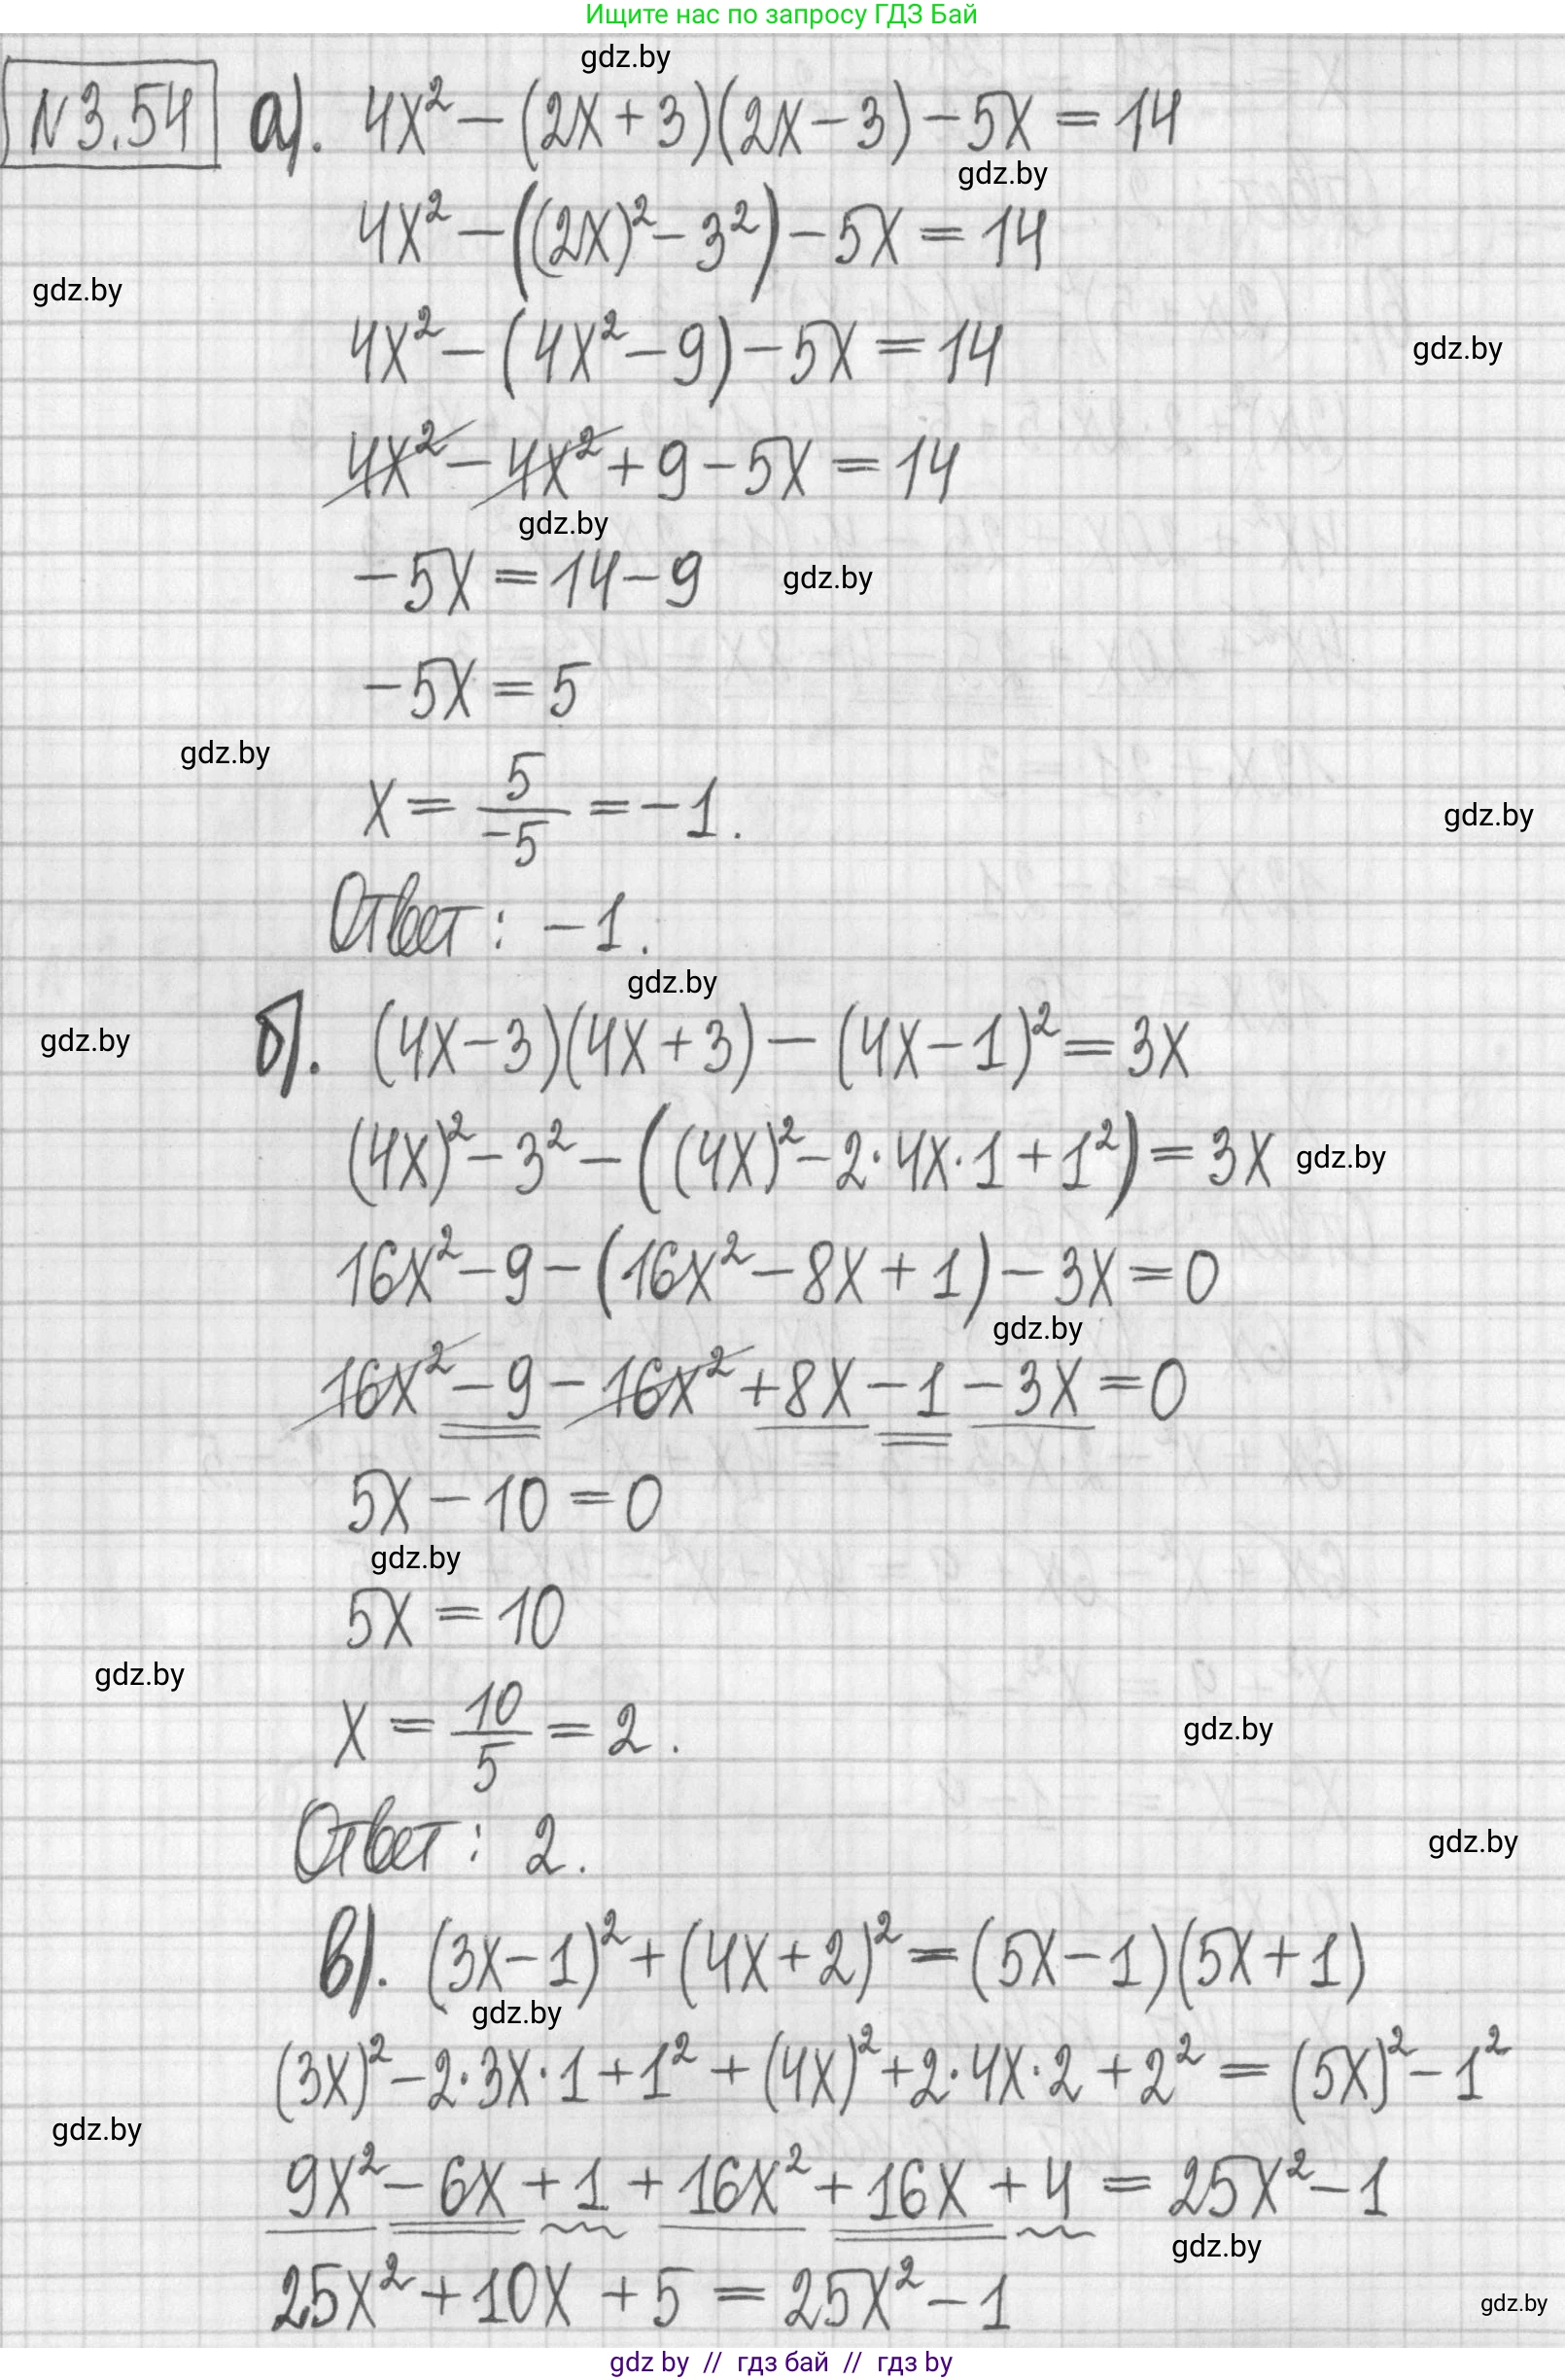 Ищите нас по запросу ГДЗ Бай
gdz.by
N 3.54 а). 4x² − (2x + 3)(2x − 3) − 5x = 14
gdz.by
4x² − ((2x)² − 3²) − 5x = 14
gdz.by
4x² − (4x² − 9) − 5x = 14
gdz.by
4x² − 4x² + 9 − 5x = 14
gdz.by
−5x = 14 − 9
gdz.by
−5x = 5
gdz.by
x = 5/−5 = −1.
gdz.by
Ответ: −1.
gdz.by
б). (4x − 3)(4x + 3) − (4x − 1)² = 3x
gdz.by
(4x)² − 3² − ((4x)² − 2·4x·1 + 1²) = 3x
gdz.by
16x² − 9 − (16x² − 8x + 1) − 3x = 0
gdz.by
16x² − 9 − 16x² + 8x − 1 − 3x = 0
5x − 10 = 0
gdz.by
5x = 10
gdz.by
x = 10/5 = 2.
gdz.by
Ответ: 2.
gdz.by
в). (3x − 1)² + (4x + 2)² = (5x − 1)(5x + 1)
gdz.by
(3x)² − 2·3x·1 + 1² + (4x)² + 2·4x·2 + 2² = (5x)² − 1²
gdz.by
9x² − 6x + 1 + 16x² + 16x + 4 = 25x² − 1
gdz.by
25x² + 10x + 5 = 25x² − 1
gdz.by
gdz by // гдз бай // гдз by